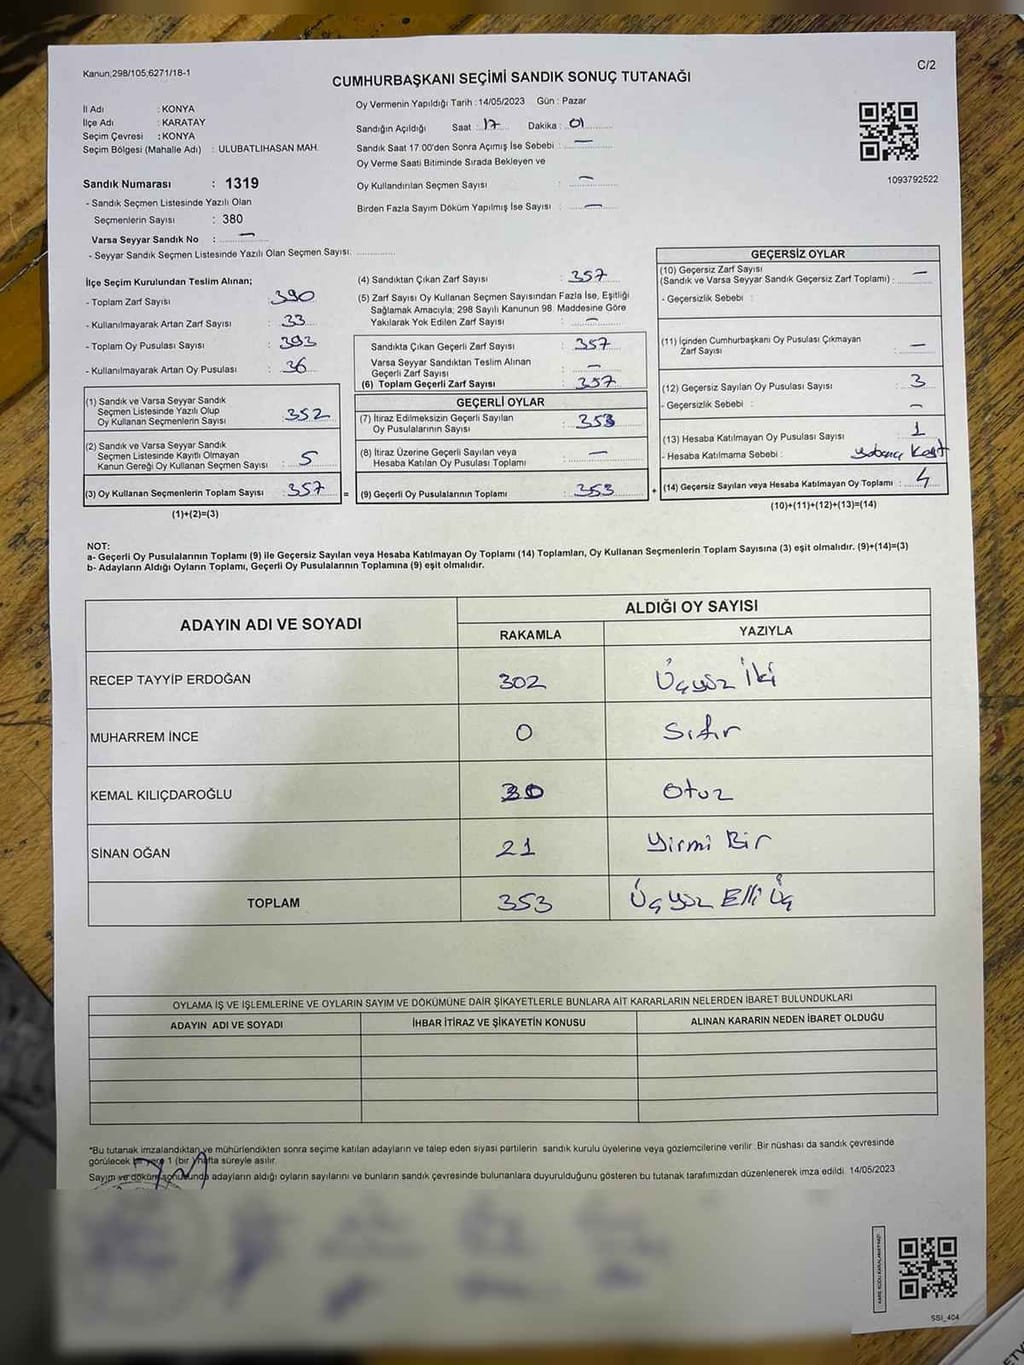 Kanun;298/105;6271/18-1
C/2
CUMHURBAŞKANI SEÇİMİ SANDIK SONUÇ TUTANAĞI
İl Adı : KONYA
İlçe Adı : KARATAY
Seçim Çevresi : KONYA
Seçim Bölgesi (Mahalle Adı) : ULUBATLIHASAN MAH.
Oy Vermenin Yapıldığı Tarih : 14/05/2023 Gün : Pazar
Sandığın Açıldığı Saat : 17 Dakika : 01
Sandık Saat 17 00'den Sonra Açımış İse Sebebi : —
Oy Verme Saati Bitiminde Sırada Bekleyen ve
Oy Kullandırılan Seçmen Sayısı : —
Birden Fazla Sayım Döküm Yapılmış İse Sayısı : —
1093792522
Sandık Numarası : 1319
- Sandık Seçmen Listesinde Yazılı Olan
Seçmenlerin Sayısı : 380
Varsa Seyyar Sandık No : —
- Seyyar Sandık Seçmen Listesinde Yazılı Olan Seçmen Sayısı:
İlçe Seçim Kurulundan Teslim Alınan;
- Toplam Zarf Sayısı : 390
- Kullanılmayarak Artan Zarf Sayısı : 33
- Toplam Oy Pusulası Sayısı : 393
- Kullanılmayarak Artan Oy Pusulası : 36
(1) Sandık ve Varsa Seyyar Sandık
Seçmen Listesinde Yazılı Olup
Oy Kullanan Seçmenlerin Sayısı : 352
(2) Sandık ve Varsa Seyyar Sandık
Seçmen Listesinde Kayıtlı Olmayan
Kanun Gereği Oy Kullanan Seçmen Sayısı : 5
(3) Oy Kullanan Seçmenlerin Toplam Sayısı : 357 =
(1)+(2)=(3)
(4) Sandıktan Çıkan Zarf Sayısı : 357
(5) Zarf Sayısı Oy Kullanan Seçmen Sayısından Fazla İse, Eşitliği
Sağlamak Amacıyla; 298 Sayılı Kanunun 98. Maddesine Göre
Yakılarak Yok Edilen Zarf Sayısı : —
Sandıkta Çıkan Geçerli Zarf Sayısı : 357
Varsa Seyyar Sandıktan Teslim Alınan
Geçerli Zarf Sayısı : —
(6) Toplam Geçerli Zarf Sayısı : 357
GEÇERLİ OYLAR
(7) İtiraz Edilmeksizin Geçerli Sayılan
Oy Pusulalarının Sayısı : 353
(8) İtiraz Üzerine Geçerli Sayılan veya
Hesaba Katılan Oy Pusulası Toplamı : —
(9) Geçerli Oy Pusulalarının Toplamı : 353 +
GEÇERSİZ OYLAR
(10) Geçersiz Zarf Sayısı
(Sandık ve Varsa Seyyar Sandık Geçersiz Zarf Toplamı) : —
- Geçersizlik Sebebi :
(11) İçinden Cumhurbaşkanı Oy Pusulası Çıkmayan
Zarf Sayısı : —
(12) Geçersiz Sayılan Oy Pusulası Sayısı : 3
- Geçersizlik Sebebi : —
(13) Hesaba Katılmayan Oy Pusulası Sayısı : 1
- Hesaba Katılmama Sebebi :
(14) Geçersiz Sayılan veya Hesaba Katılmayan Oy Toplamı : 4
(10)+(11)+(12)+(13)=(14)
NOT:
a- Geçerli Oy Pusulalarının Toplamı (9) ile Geçersiz Sayılan veya Hesaba Katılmayan Oy Toplamı (14) Toplamları, Oy Kullanan Seçmenlerin Toplam Sayısına (3) eşit olmalıdır. (9)+(14)=(3)
b- Adayların Aldığı Oyların Toplamı, Geçerli Oy Pusulalarının Toplamına (9) eşit olmalıdır.
ADAYIN ADI VE SOYADI ALDIĞI OY SAYISI
RAKAMLA YAZIYLA
RECEP TAYYİP ERDOĞAN 302 Üçyüz İki
MUHARREM İNCE 0 Sıfır
KEMAL KILIÇDAROĞLU 30 Otuz
SİNAN OĞAN 21 Yirmi Bir
TOPLAM 353 Üçyüz Elli Üç
OYLAMA İŞ VE İŞLEMLERİNE VE OYLARIN SAYIM VE DÖKÜMÜNE DAİR ŞİKAYETLERLE BUNLARA AİT KARARLARIN NELERDEN İBARET BULUNDUKLARI
ADAYIN ADI VE SOYADI İHBAR İTİRAZ VE ŞİKAYETİN KONUSU ALINAN KARARIN NEDEN İBARET OLDUĞU
*Bu tutanak imzalandıktan ve mühürlendikten sonra seçime katılan adayların ve talep eden siyasi partilerin sandık kurulu üyelerine veya gözlemcilerine verilir. Bir nüshası da sandık çevresinde
görülecek bir yere 1 (bir) hafta süreyle asılır.
Sayım ve döküm sonucunda adayların aldığı oyların sayılarını ve bunların sandık çevresinde bulunanlara duyurulduğunu gösteren bu tutanak tarafımızdan düzenlenerek imza edildi. 14/05/2023
SSİ_404